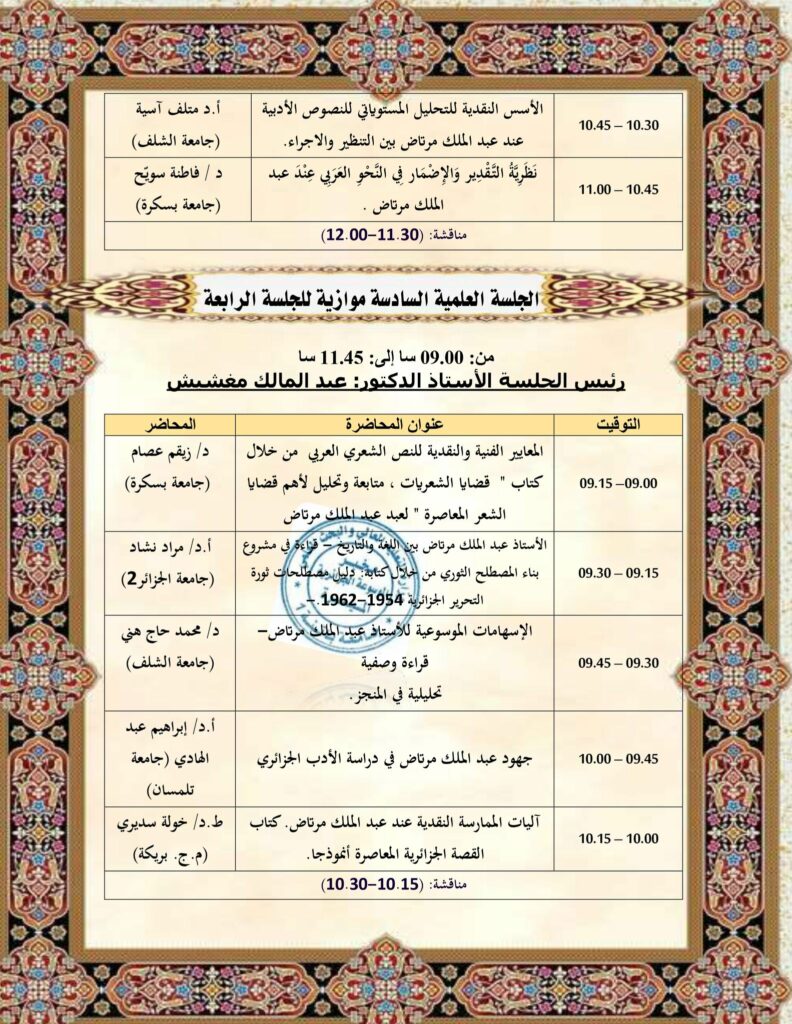 10.30 – 10.45
الأسس النقدية للتحليل المستوياتي للنصوص الأدبية
عند عبد الملك مرتاض بين التنظير والاجراء.
أ.د متلف آسية
(جامعة الشلف)
10.45 – 11.00
نَظَرِيَّةُ التَّقْدِير وَالإِضْمَار فِي النَّحْوِ العَرَبِي عِنْدَ عبد
الملك مرتاض .
د / فاطنة سويّح
(جامعة بسكرة)
مناقشة: (11.30–12.00)
الجلسة العلمية السادسة موازية للجلسة الرابعة
من: 09.00 سا إلى: 11.45 سا
رئيس الجلسة الأستاذ الدكتور: عبد المالك مغشيش
التوقيت
عنوان المحاضرة
المحاضر
09.00 –09.15
المعايير الفنية والنقدية للنص الشعري العربي من خلال
كتاب " قضايا الشعريات ، متابعة وتحليل لأهم قضايا
الشعر المعاصرة " لعبد عبد الملك مرتاض
د/ زيقم عصام
(جامعة بسكرة)
09.15 – 09.30
الأستاذ عبد الملك مرتاض بين اللغة والتاريخ – قراءة في مشروع
بناء المصطلح الثوري من خلال كتابة: دليل مصطلحات ثورة
التحرير الجزائرية 1954–1962.–
أ.د/ مراد نشاد
(جامعة الجزائر2)
09.30 – 09.45
الإسهامات الموسوعية للأستاذ عبد الملك مرتاض–
قراءة وصفية
تحليلية في المنجز.
د/ محمد حاج هني
(جامعة الشلف)
09.45 – 10.00
جهود عبد الملك مرتاض في دراسة الأدب الجزائري
أ.د/ إبراهيم عبد
الهادي (جامعة
تلمسان)
10.00 – 10.15
آليات الممارسة النقدية عند عبد الملك مرتاض. كتاب
القصة الجزائرية المعاصرة أنموذجا.
ط.د/ خولة سديري
(م.ج. بريكة)
مناقشة: (10.15–10.30)